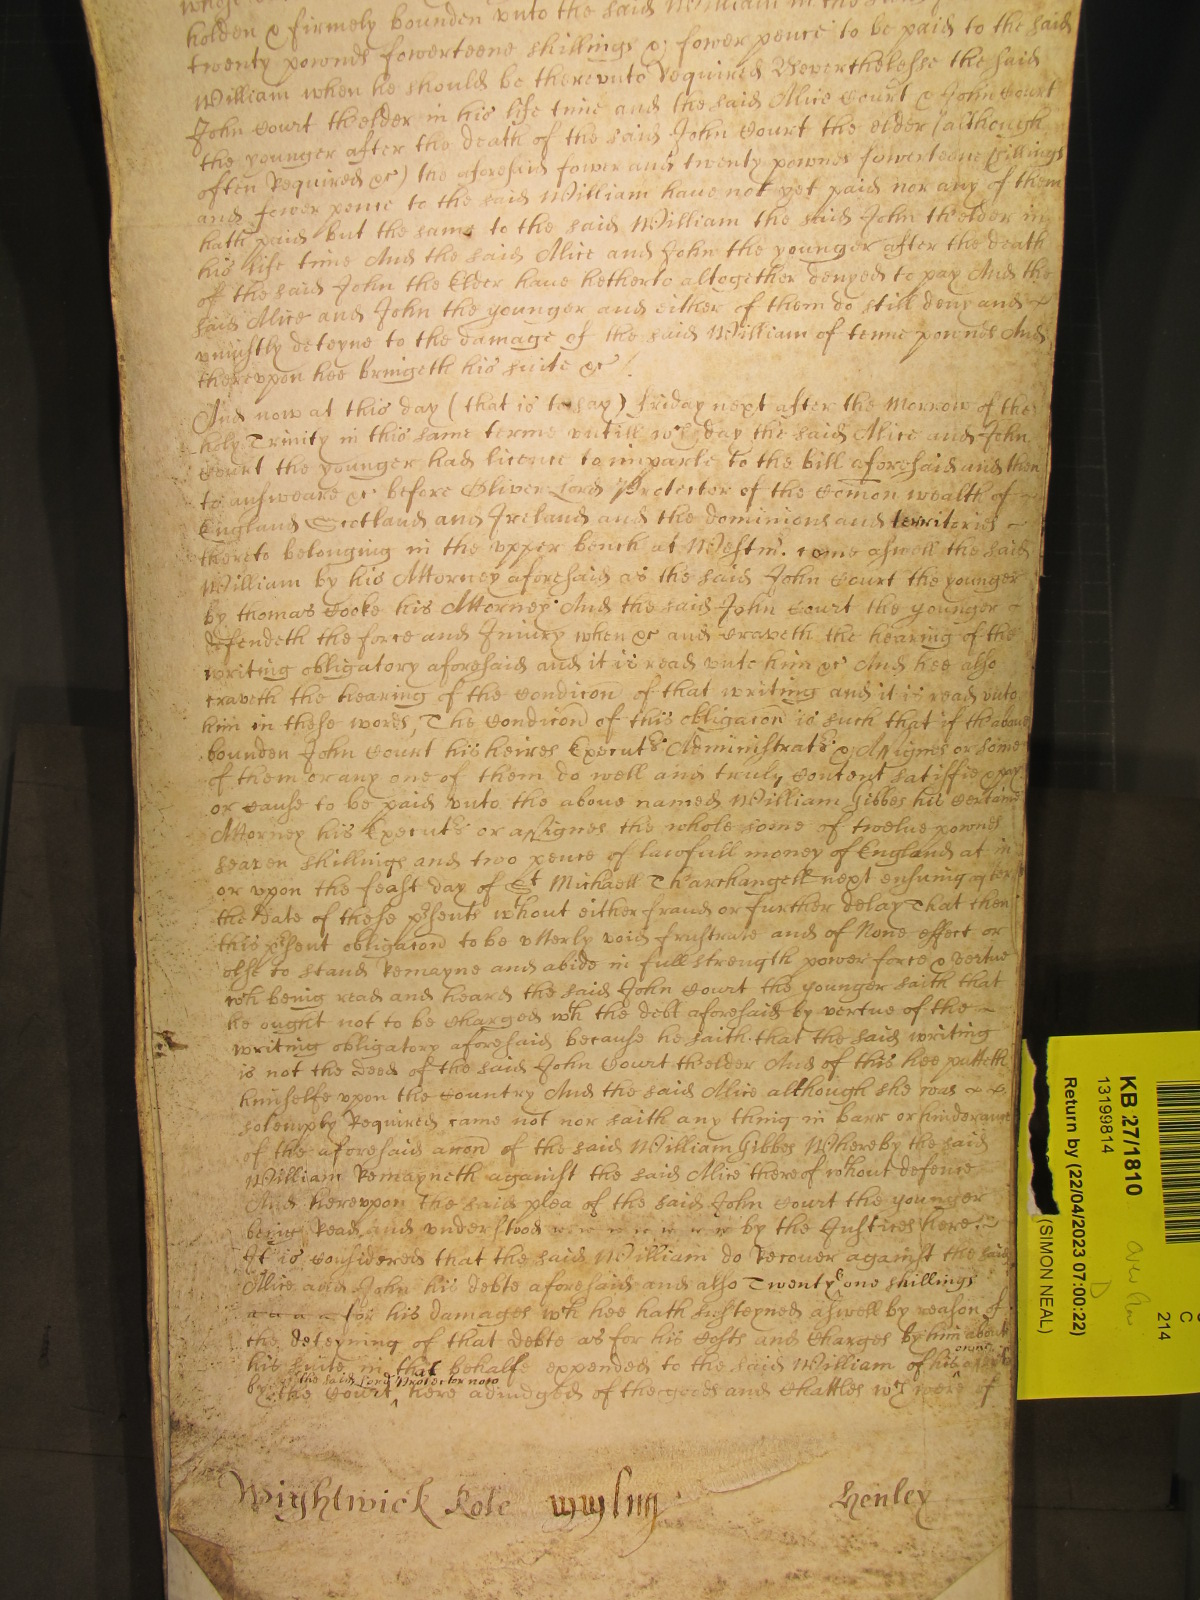 holden & firmely bounden unto the said William in the
twenty pownds fowerteene shillings & fower pence to be paid to the said
William when he should be therevnto Required Neverthelesse the said
John Court thelder in his life time and the said Alice Court & John Court
the younger after the death of the said John Court the elder (although
often Required &c) the aforesaid fower and twenty pownds fowerteene shillings
and fower pence to the said William haue not yet paid nor any of them
hath paid but the same to the said William the said John thelder in
his life time And the said Alice and John the younger after the death
of the said John the Elder haue hetherto altogether denyed to pay And the
said Alice and John the younger and either of them do still deny and
vniustly deteyne to the damage of the said William of tenne pownds And
therevpon hee bringeth his suite &c
And now at this day (that is to say) friday next after the Morrow of the
holy Trinity in this same terme vntill wch day the said Alice and John
Court the younger had licence to imparle to the bill aforesaid and then
to answeare &c before Oliver Lord Protector of the Comon wealth of
England Scotland and Ireland and the dominions and territories
thereto belonging in the vpper bench at Westm̃. come aswell the said
William by his Attorney aforesaid as the said John Court the younger
by thomas Cooke his Attorney And the said John Court the younger
defendeth the force and Iniury when &c and craveth the hearing of the
writing obligatory aforesaid and it is read vnto him &c And hee also
craveth the hearing of the Condicon of that writing and it is read vnto
him in these words, The Condicon of this obligacon is such that if thabove
bounden John Court his heires Executrs Administratrs & Assignes or some
of them or any one of them do well and truly content satisfie & pay
or cause to be paid vnto the above named William Gibbes his certaine
Attorney his Executrs or assignes the whole some of twelue pownds
seaven shillings and two pence of lawfull money of England at in
or vpon the feast day of St Michaell Tharchangell next ensuing after
the date of these psents wthout either fraud or further delay That then
this psent obligacon to be vtterly void frustrate and of None effect or
else to stand Remayne and abide in full strength power force & vertue
wch being read and heard the said John Court the younger saith that
he ought not to be charged wth the debt aforesaid by vertue of the
writing obligatory aforesaid because he saith that the said writing
is not the deed of the said John Court thelder And of this hee putteth
himselfe vpon the Country And the said Alice although she was
solemply Required came not nor saith any thing in barr or hinderance
of the aforesaid accon of the said William Gibbes Whereby the said
William Remayneth against the said Alice thereof wthout defence
And herevpon the said plea of the said John Court the younger
being Read and vnderstood by the Justices here
It is Considered that the said William do Recouer against the said
Alice and John his debte aforesaid and also Twenty one shillings
for his damages wch hee hath susteyned aswell by reason of
the deteyning of that debte as for his Costs and Charges by him about
his suite in that behalfe expended to the said William of his owne assent
by the Court the said Lord Protector now here adiudged of the goods and Chattles wch were of
Wightwick Role Henley
KB 27/1810
13199814
Return by (22/04/2023 07:00:22)
(SIMON NEAL)
C
214
D